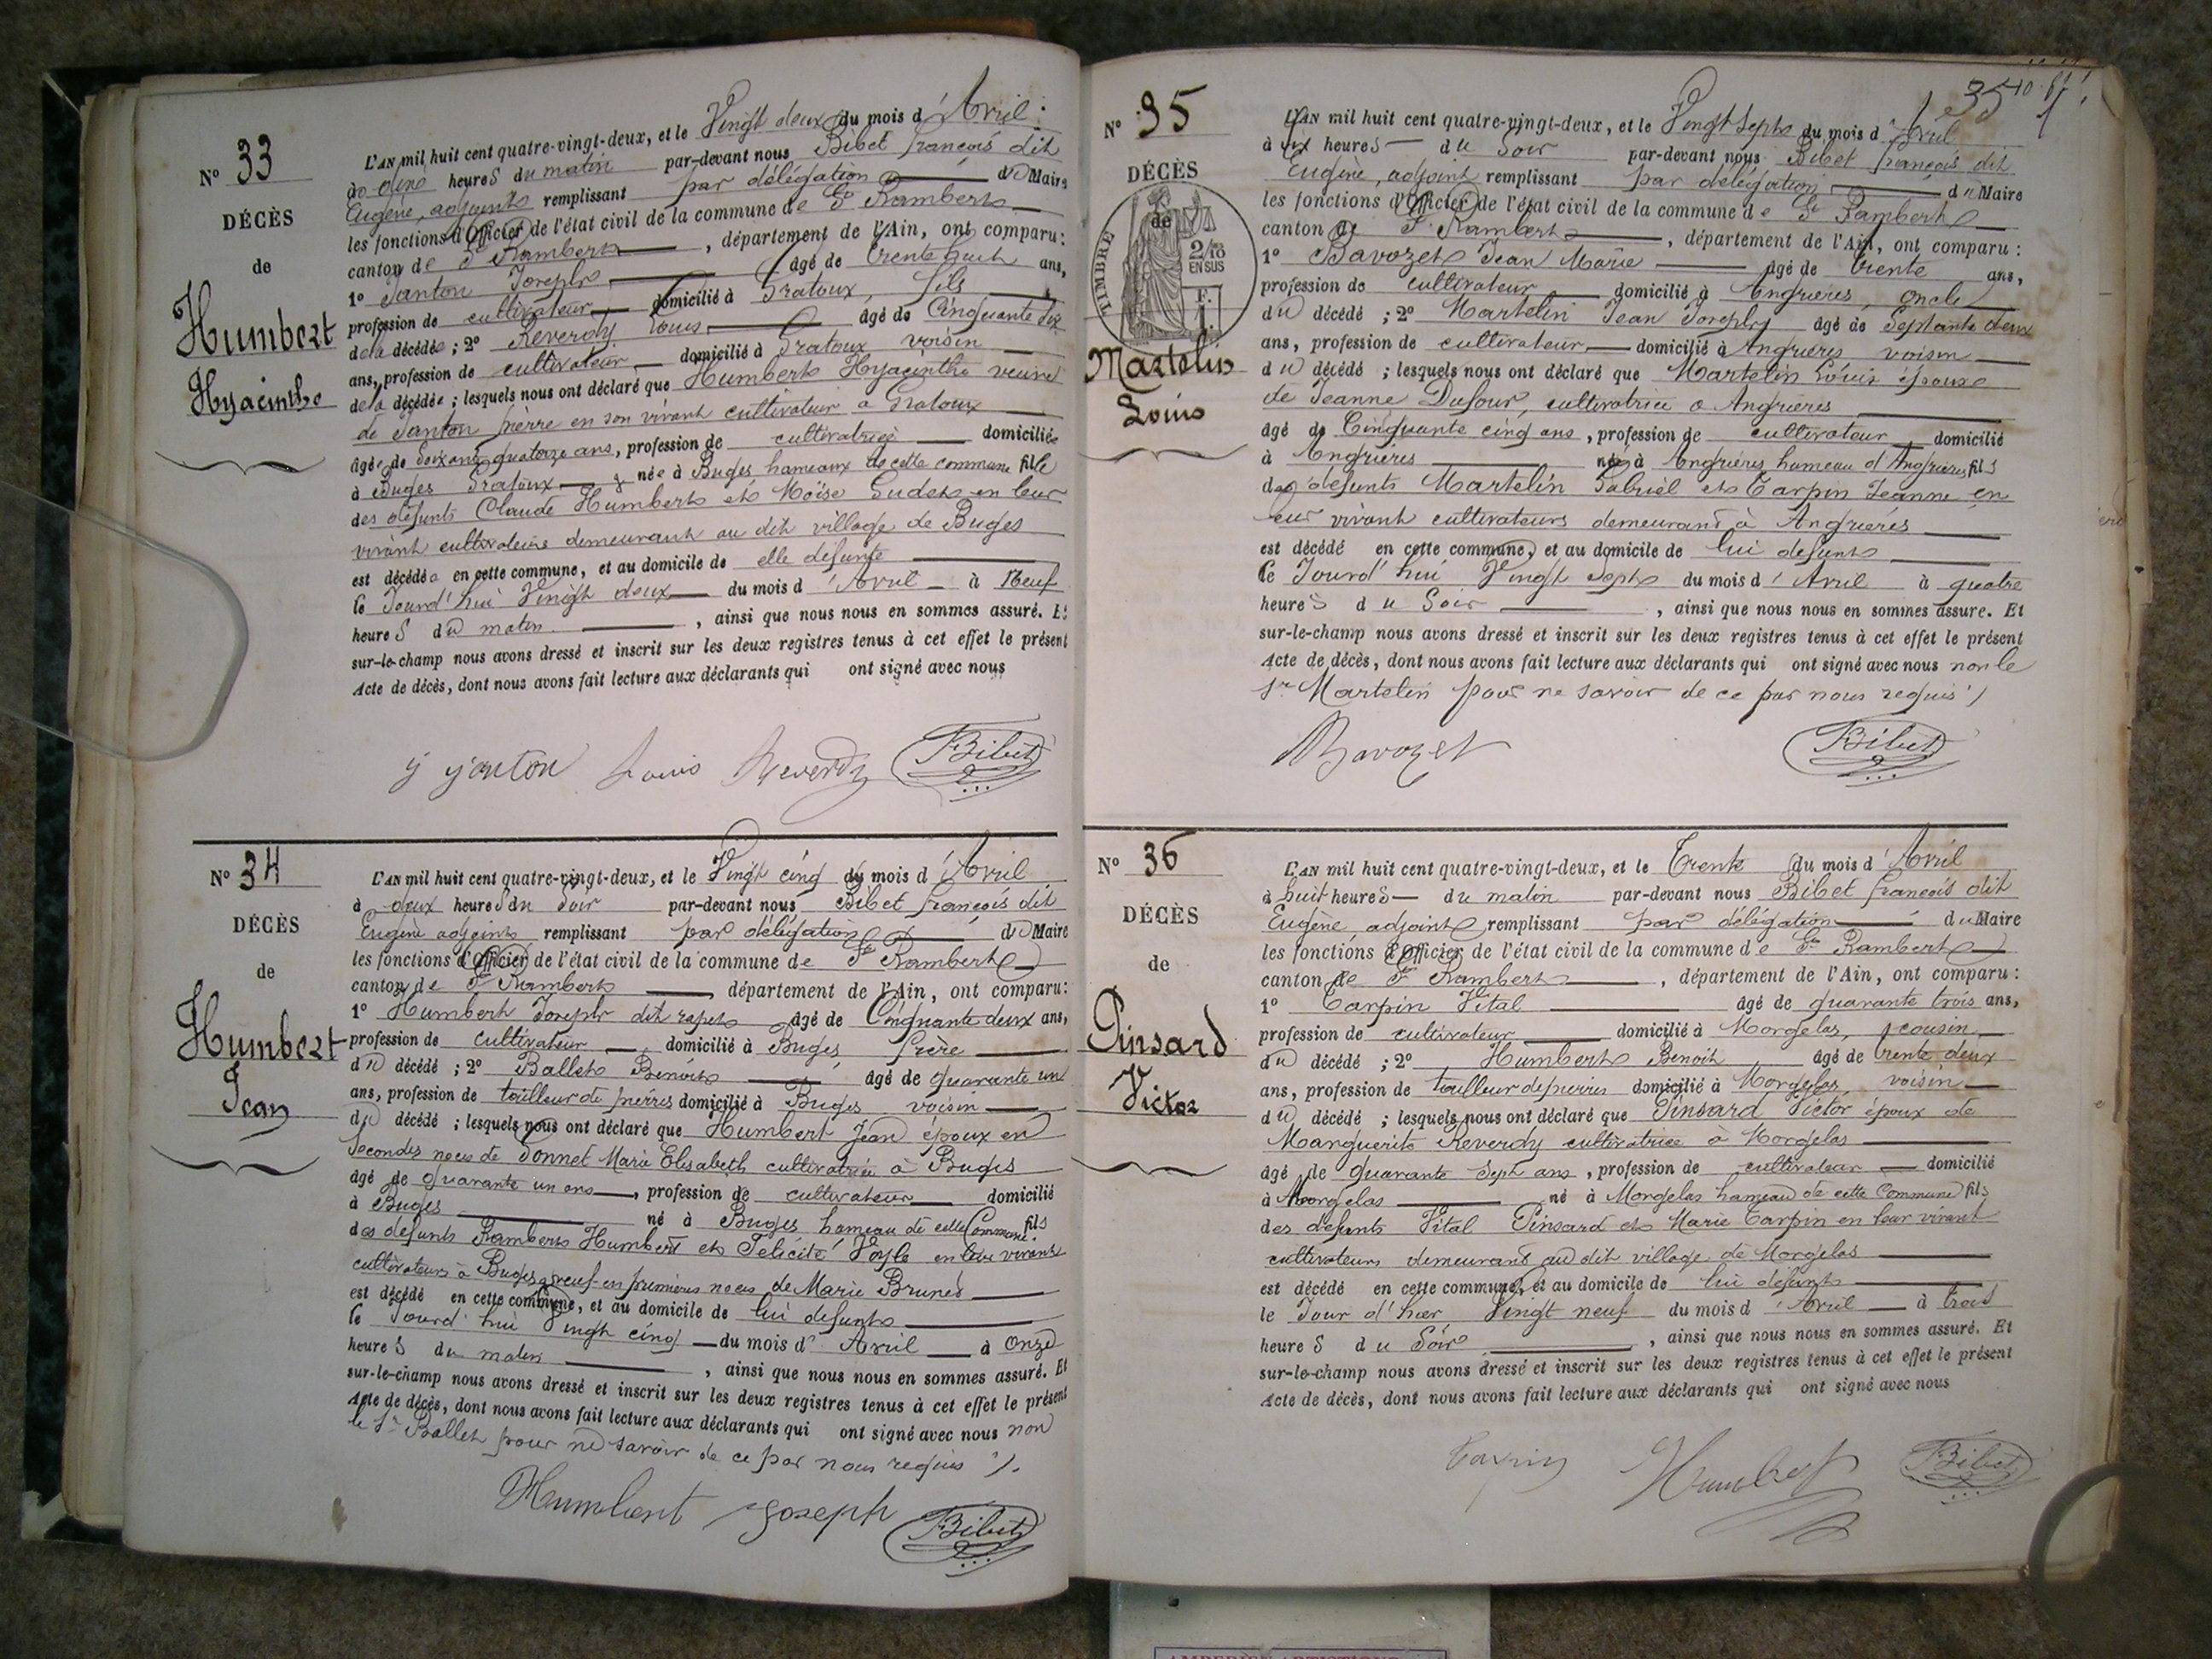 N° 33
DÉCÈS
de
Humbert
Hyacinthe
L'AN mil huit cent quatre-vingt-deux, et le Vingt deux du mois d'Avril
à dix heures du matin par-devant nous Bibet françois dit
Eugène, adjoint remplissant par délégation du Maire
les fonctions d'Officier de l'état civil de la commune de St Rambert
canton de St Rambert, département de l'Ain, ont comparu:
1° Janton Joseph âgé de trente huit ans,
profession de cultivateur domicilié à Gratoux, fils
de la décédée; 2° Reverdy Louis âgé de Cinquante dix
ans, profession de cultivateur, domicilié à Gratoux voisin
de la décédée; lesquels nous ont déclaré que Humbert Hyacinthe veuve
de Janton pierre en son vivant cultivateur a Gratoux
âgée de soixante quatorze ans, profession de cultivatrice domiciliée
à Buges Gratoux & née à Buges hameaux de cette commune fille
des défunts Claude Humbert et Moïse Gudet en leur
vivant cultivateurs demeurant au dit village de Buges
est décédée en cette commune, et au domicile de elle défunte
le Jourd'hui Vingt deux du mois d'Avril à Neuf
heures du matin, ainsi que nous nous en sommes assuré. Et
sur-le-champ nous avons dressé et inscrit sur les deux registres tenus à cet effet le présent
Acte de décès, dont nous avons fait lecture aux déclarants qui ont signé avec nous
j janton Louis Reverdy Bibet
N° 34
DÉCÈS
de
Humbert
Jean
L'AN mil huit cent quatre-vingt-deux, et le Vingt cinq du mois d'Avril
à deux heures du soir par-devant nous Bibet françois dit
Eugène adjoint remplissant par délégation du Maire
les fonctions d'Officier de l'état civil de la commune de St Rambert
canton de St Rambert, département de l'Ain, ont comparu:
1° Humbert Joseph dit rapet âgé de Cinquante deux ans,
profession de cultivateur, domicilié à Buges frère
du décédé; 2° Ballet Benoît âgé de quarante un
ans, profession de tailleur de pierres domicilié à Buges voisin
du décédé; lesquels nous ont déclaré que Humbert Jean époux en
Secondes noces de Donnet Marie Elisabeth cultivatrice à Buges
âgé de quarante un ans, profession de cultivateur domicilié
à Buges né à Buges hameau de cette Commune fils
des défunts Rambert Humbert et Félicité Voyle en leur vivant
cultivateurs à Buges, veuf en premières noces de Marie Brunet
est décédé en cette commune, et au domicile de lui defunt
le Jourd'hui Vingt cinq du mois d'Avril à Onze
heures du matin, ainsi que nous nous en sommes assuré. Et
sur-le-champ nous avons dressé et inscrit sur les deux registres tenus à cet effet le présent
Acte de décès, dont nous avons fait lecture aux déclarants qui ont signé avec nous non
le Sr Ballet pour ne savoir de ce par nous requis /.
Humbert joseph Bibet
35
N° 35
DÉCÈS
de
TIMBRE
2/10
EN SUS
Martelin
Louis
L'AN mil huit cent quatre-vingt-deux, et le Vingt Sept du mois d'Avril
à Six heures du Soir par-devant nous Bibet françois dit
Eugène, adjoint remplissant par délégation du Maire
les fonctions d'Officier de l'état civil de la commune de St Rambert
canton de St Rambert, département de l'Ain, ont comparu:
1° Bavozet Jean Marie âgé de trente ans,
profession de cultivateur domicilié à Angrieres, oncle
du décédé; 2° Martelin Jean Joseph âgé de Septante deux
ans, profession de cultivateur domicilié à Angrieres voisin
du décédé; lesquels nous ont déclaré que Martelin Louis époux
de Jeanne Dufour, cultivatrice a Angrieres
âgé de Cinquante cinq ans, profession de cultivateur domicilié
à Angrieres né à Angrieres, hameau d'Angrieres fils
des defunts Martelin Gabriel et Tarpin Jeanne en
leur vivant cultivateurs demeurant à Angrieres
est décédé en cette commune, et au domicile de lui defunt
le Jourd'hui Vingt Sept du mois d'Avril à quatre
heures du Soir, ainsi que nous nous en sommes assuré. Et
sur-le-champ nous avons dressé et inscrit sur les deux registres tenus à cet effet le présent
Acte de décès, dont nous avons fait lecture aux déclarants qui ont signé avec nous non le
Sr Martelin pour ne savoir de ce par nous requis /
Bavozet Bibet
N° 36
DÉCÈS
de
Pinsard
Victor
L'AN mil huit cent quatre-vingt-deux, et le Trente du mois d'Avril
à huit heures du matin par-devant nous Bibet françois dit
Eugène adjoint remplissant par délégation du Maire
les fonctions d'Officier de l'état civil de la commune de St Rambert
canton de St Rambert, département de l'Ain, ont comparu:
1° Tarpin Vital âgé de quarante trois ans,
profession de cultivateur domicilié à Morgelas, cousin
du décédé; 2° Humbert Benoit âgé de trente deux
ans, profession de tailleur de pierres domicilié à Morgelas, voisin
du décédé; lesquels nous ont déclaré que Pinsard Victor époux de
Marguerite Reverdy cultivatrice à Morgelas
âgé de quarante Sept ans, profession de cultivateur domicilié
à Morgelas né à Morgelas hameau de cette Commune fils
des defunts Vital Pinsard et Marie Tarpin en leur vivant
cultivateurs demeurant au dit village de Morgelas
est décédé en cette commune, et au domicile de lui défunt
le Jour d'hier Vingt neuf du mois d'Avril à trois
heures du Soir, ainsi que nous nous en sommes assuré. Et
sur-le-champ nous avons dressé et inscrit sur les deux registres tenus à cet effet le présent
Acte de décès, dont nous avons fait lecture aux déclarants qui ont signé avec nous
Tarpin Humbert Bibet